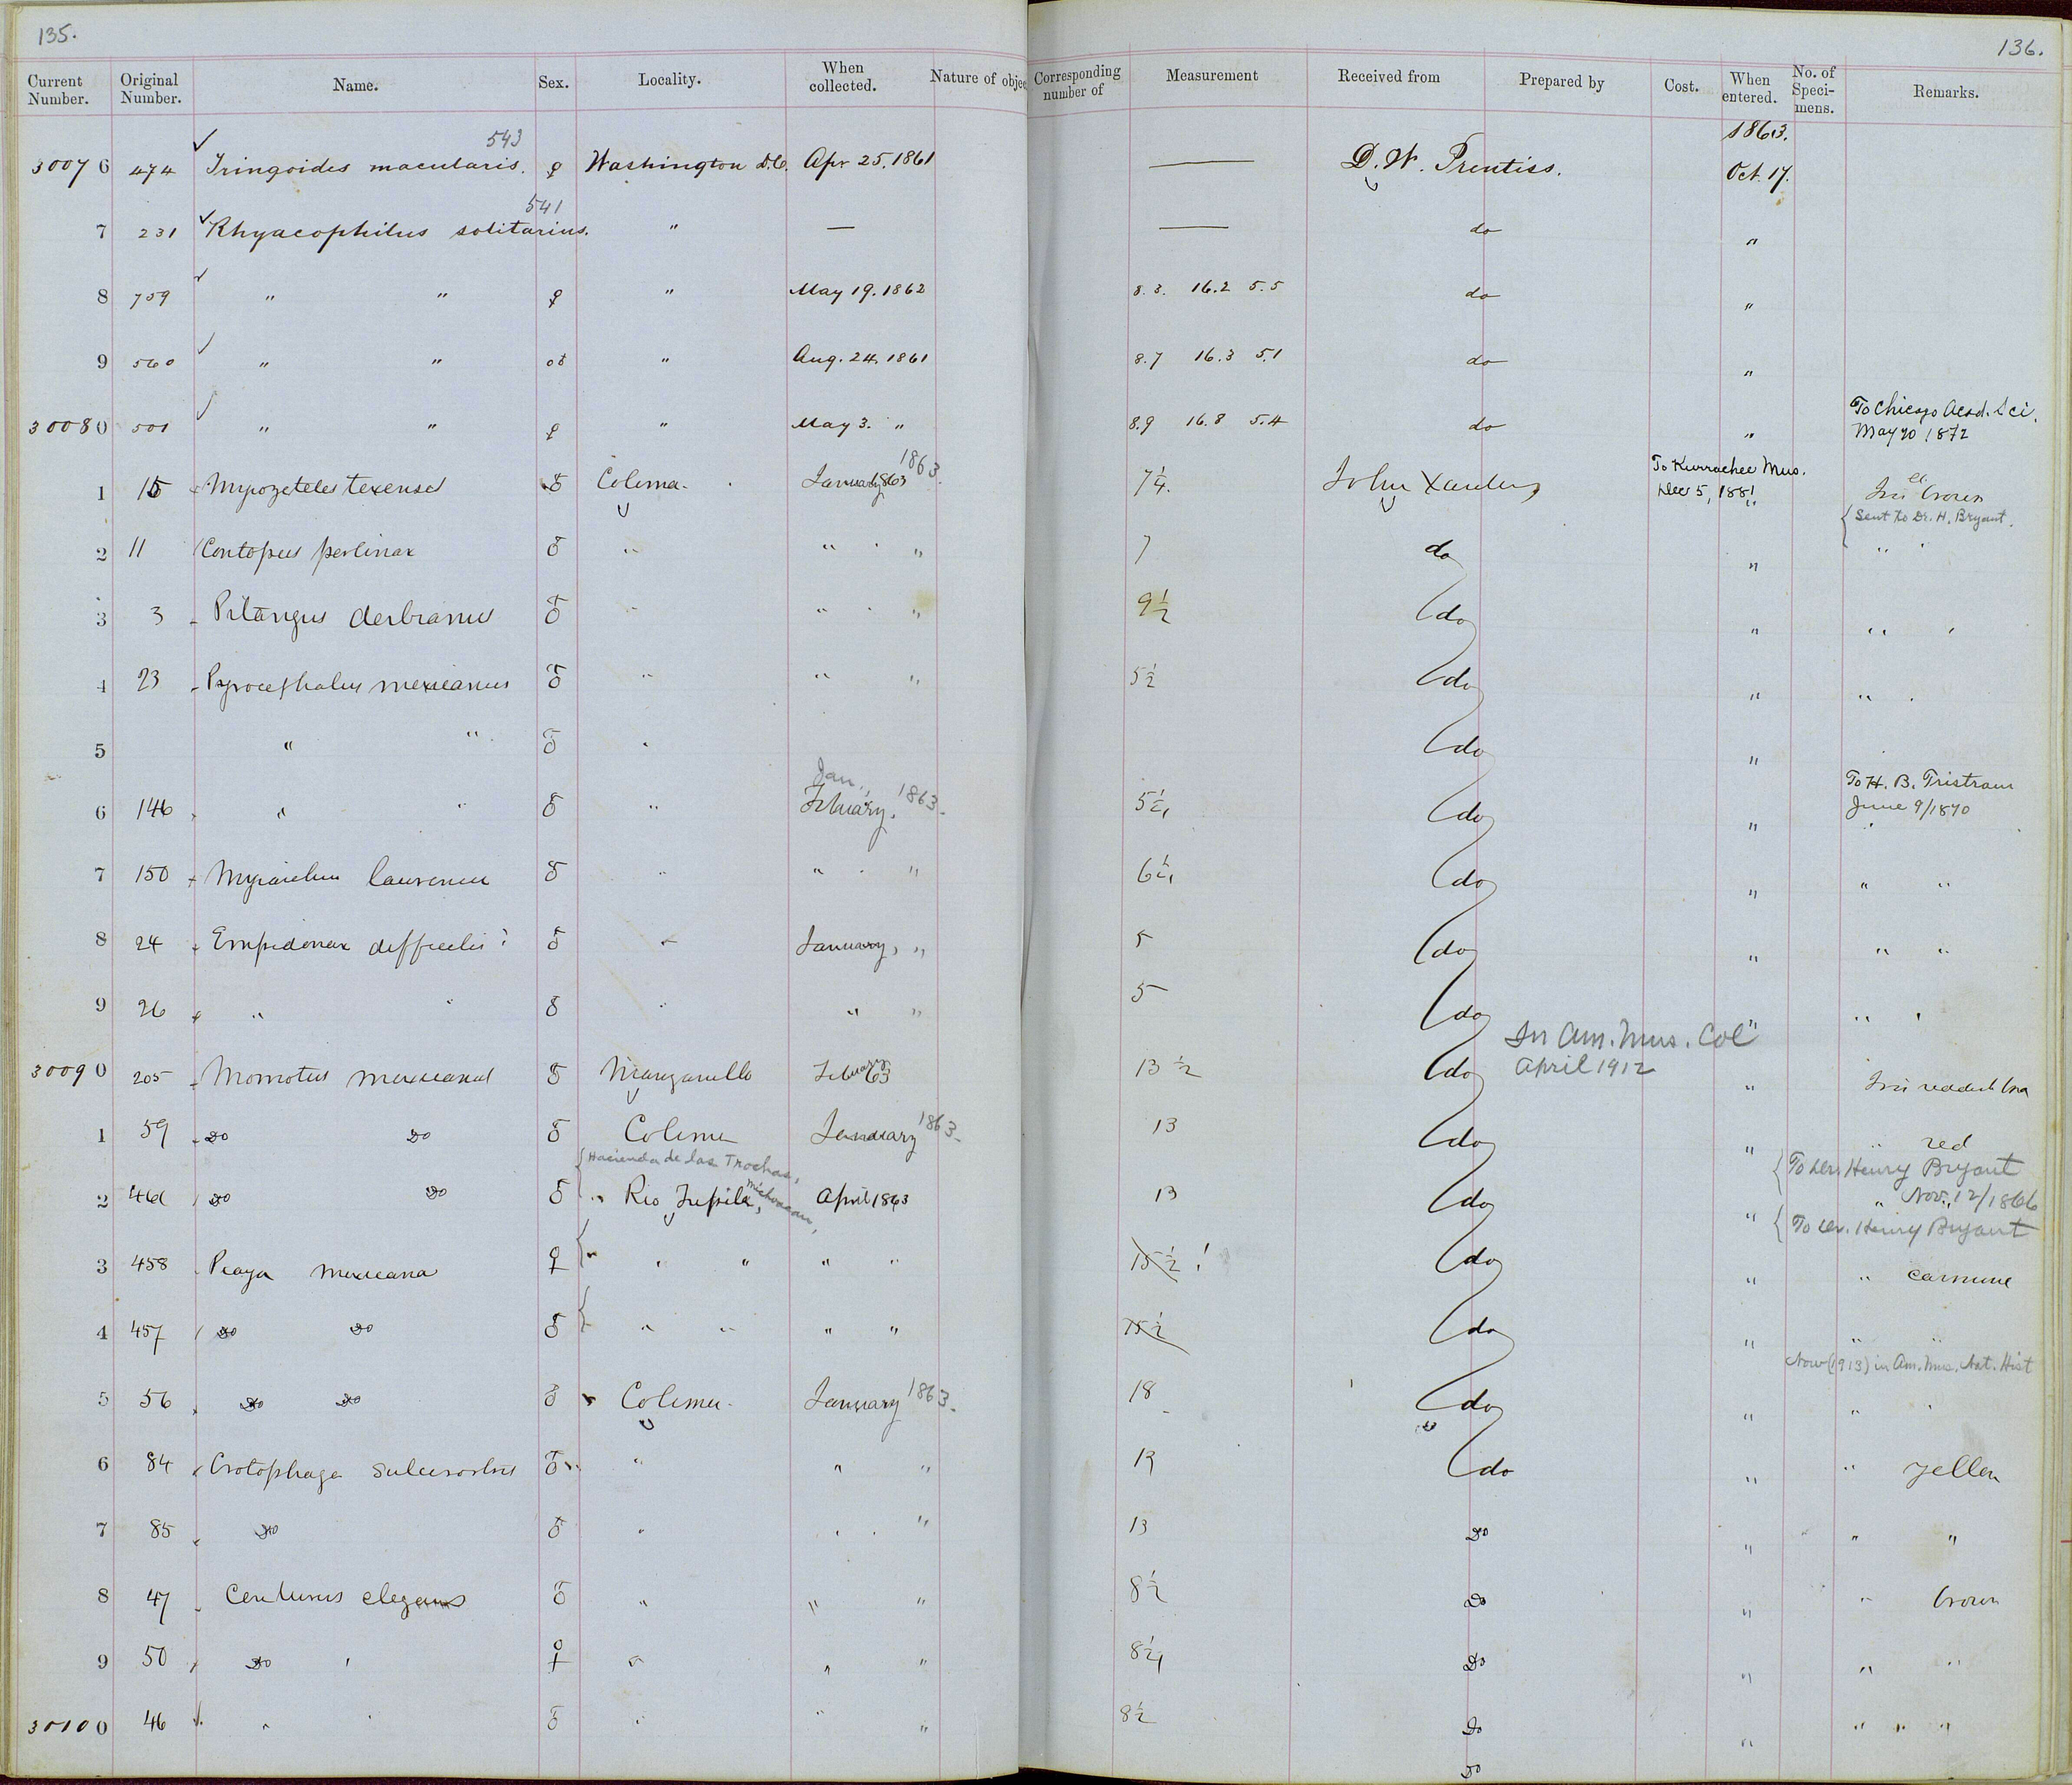 135.
136.
Current Number. Original Number. Name. Sex. Locality. When collected. Nature of objec Corresponding number of Measurement Received from Prepared by Cost. When entered. No. of Speci-mens. Remarks.
543 1863.
30076 474 Tringoides macularis. ♀ Washington D.C. Apr 25. 1861 — D. W. Prentiss. Oct. 17.
541
7 231 Rhyacophilus solitarius. " — — do "
8 709 " " ♀ " May 19. 1862 8.3. 16.2 5.5 do "
9 560 " " " Aug. 24. 1861 8.7 16.3 5.1 do "
To Chicago Acad. Sci.
30080 501 " " ♀ " May 3. " 8.9 16.8 5.4 do " May 20 1872
1863. To Kurrachee Mus.
1 15 Myozetetes texensis ♂ Colima. January 1863 7¼. John Xantus Dec 5, 1881 " Iris brown
{ Sent to Dr. H. Bryant.
2 11 Contopus pertinax ♂ " " " 7 do " "
3 3 Pitangus derbianus ♂ " " " 9½ do " "
4 23 Pyrocephalus mexicanus ♂ " " " 5½ do " "
5 " " ♂ " do "
Jan., 1863. To H. B. Tristram
6 146 " " ♂ " February. 5½ do " June 9/1870
7 150 Myiarchus lawrencii ♂ " " " 6½ do " " "
8 24 Empidonax difficilis ? ♂ " January, " 5 do " " "
9 26 " " ♂ " " " 5 do " " "
In Am. Mus. Col
April 1912
30090 205 Momotus mexicanus ♂ Manzanillo February 63 13½ do " Iris reddish bra
1 59 Do Do ♂ Colima January 1863. 13 do " " red
{ Hacienda de las Trochas, Michoacan, { To Dr. Henry Bryant
Nov. 12/1866
2 Do Do ♂ " Rio Tupila, April 1863 13 do " "
{ To Dr. Henry Bryant
3 458 Piaya mexicana ♀ { " " " " " 15½ ! do " " carmine
4 457 Do Do ♂ { " " " " 15½ do " " "
Now (1913) in Am. Mus. Nat. Hist
5 56 Do Do ♂ Colima. January 1863. 18 do " "
6 84 Crotophaga sulcirostris ♂ " " " 13 do " " yellow
7 85 Do ♂ " " " 13 Do " " "
8 47 Centurus elegans ♂ " " " 8½ Do " " brown
9 50 Do " ♀ " " " 8½ Do " " "
30100 46 " " ♂ " " " 8½ Do " " " "
Do